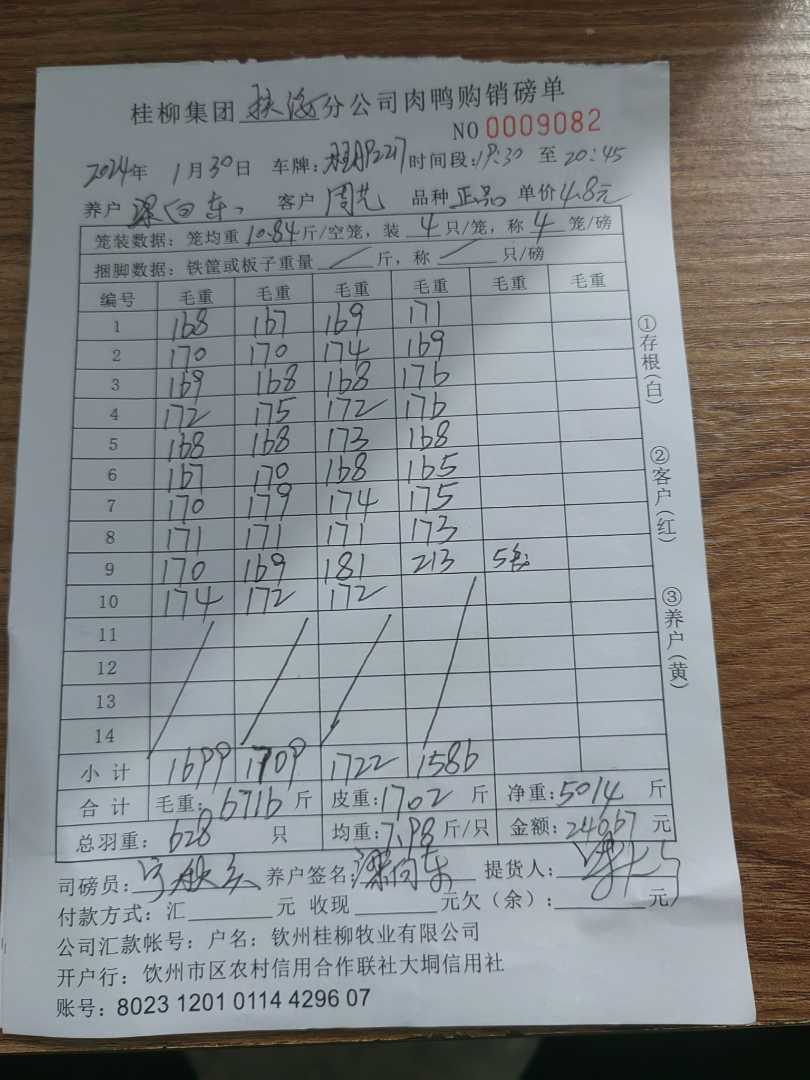 桂柳集团扶海分公司肉鸭购销磅单
NO 0009082
2024年 1月30日 车牌: 时间段:19:30 至 20:45
养户 梁向东 客户 周艺 品种 正品 单价 4.8元
笼装数据: 笼均重 10.84 斤/空笼, 装 4 只/笼, 称 4 笼/磅
捆脚数据: 铁筐或板子重量 / 斤, 称 / 只/磅
编号 毛重 毛重 毛重 毛重 毛重 毛重
1 168 167 169 171
2 170 170 174 169
3 169 168 168 176
4 172 175 172 176
5 168 168 173 168
6 167 170 168 165
7 170 179 174 175
8 171 171 171 173
9 170 169 181 213 5笼
10 174 172 172
11
12
13
14
小计 1699 1709 1722 1586
合计 毛重: 6716 斤 皮重: 1702 斤 净重: 5014 斤
总羽重: 628 只 均重: 7.98 斤/只 金额: 24067 元
司磅员: 养户签名: 梁向东 提货人:
付款方式: 汇 元 收现 元欠(余): 元
公司汇款帐号: 户名: 钦州桂柳牧业有限公司
开户行: 钦州市区农村信用合作联社大垌信用社
账号: 8023 1201 0114 4296 07
①存根(白)
②客户(红)
③养户(黄)